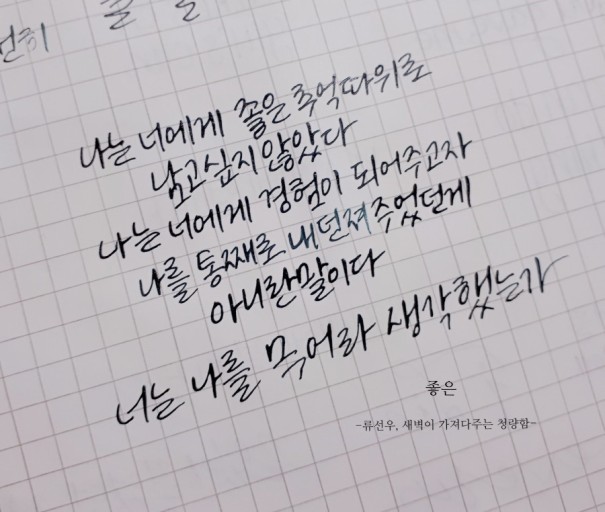 나는 너에게 좋은 추억따위로
남고싶지 않았다
나는 너에게 경험이 되어주고자
나를 통째로 내던져주었던게
아니란말이다
너는 나를 뭐라 생각했는가
좋은
-류선우, 새벽이 가져다주는 청량함-